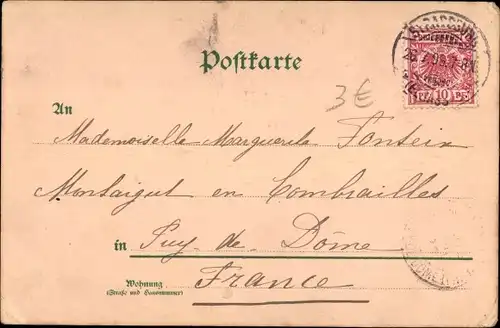 Postkarte
3€
An
Mademoiselle Marguerite Fontein
Montaigut en Combrailles
in Puy-de-Dôme
France
Wohnung
(Straße und Hausnummer)
10 PF